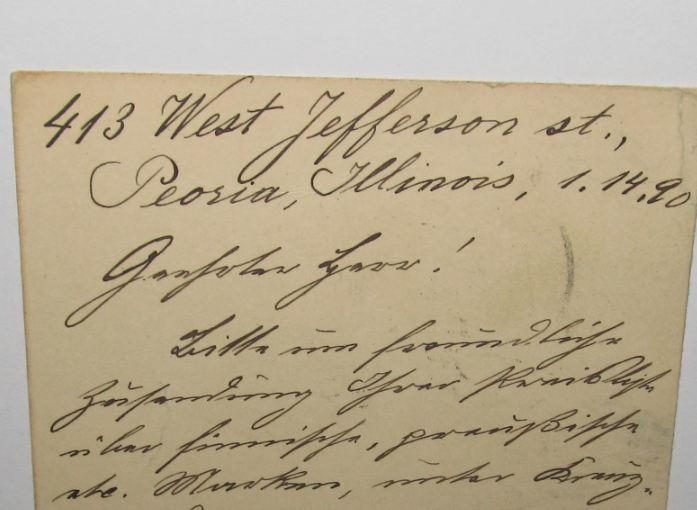 413 West Jefferson st.,
Peoria, Illinois, 1.14.90
Geehrter Herr!
Bitte um freundliche
Zusendung Ihrer Preisliste
über finnische, preußische
etc. Marken, unter Kreuz-